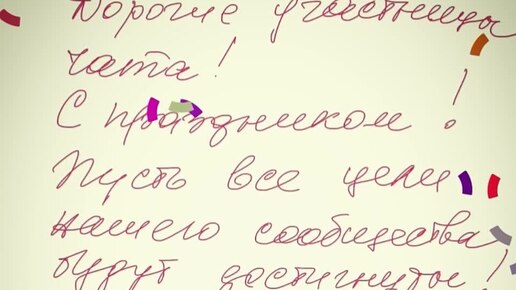 Дорогие участницы
чата!
С праздником!
Пусть все цели
нашего сообщества
будут достигнуты!